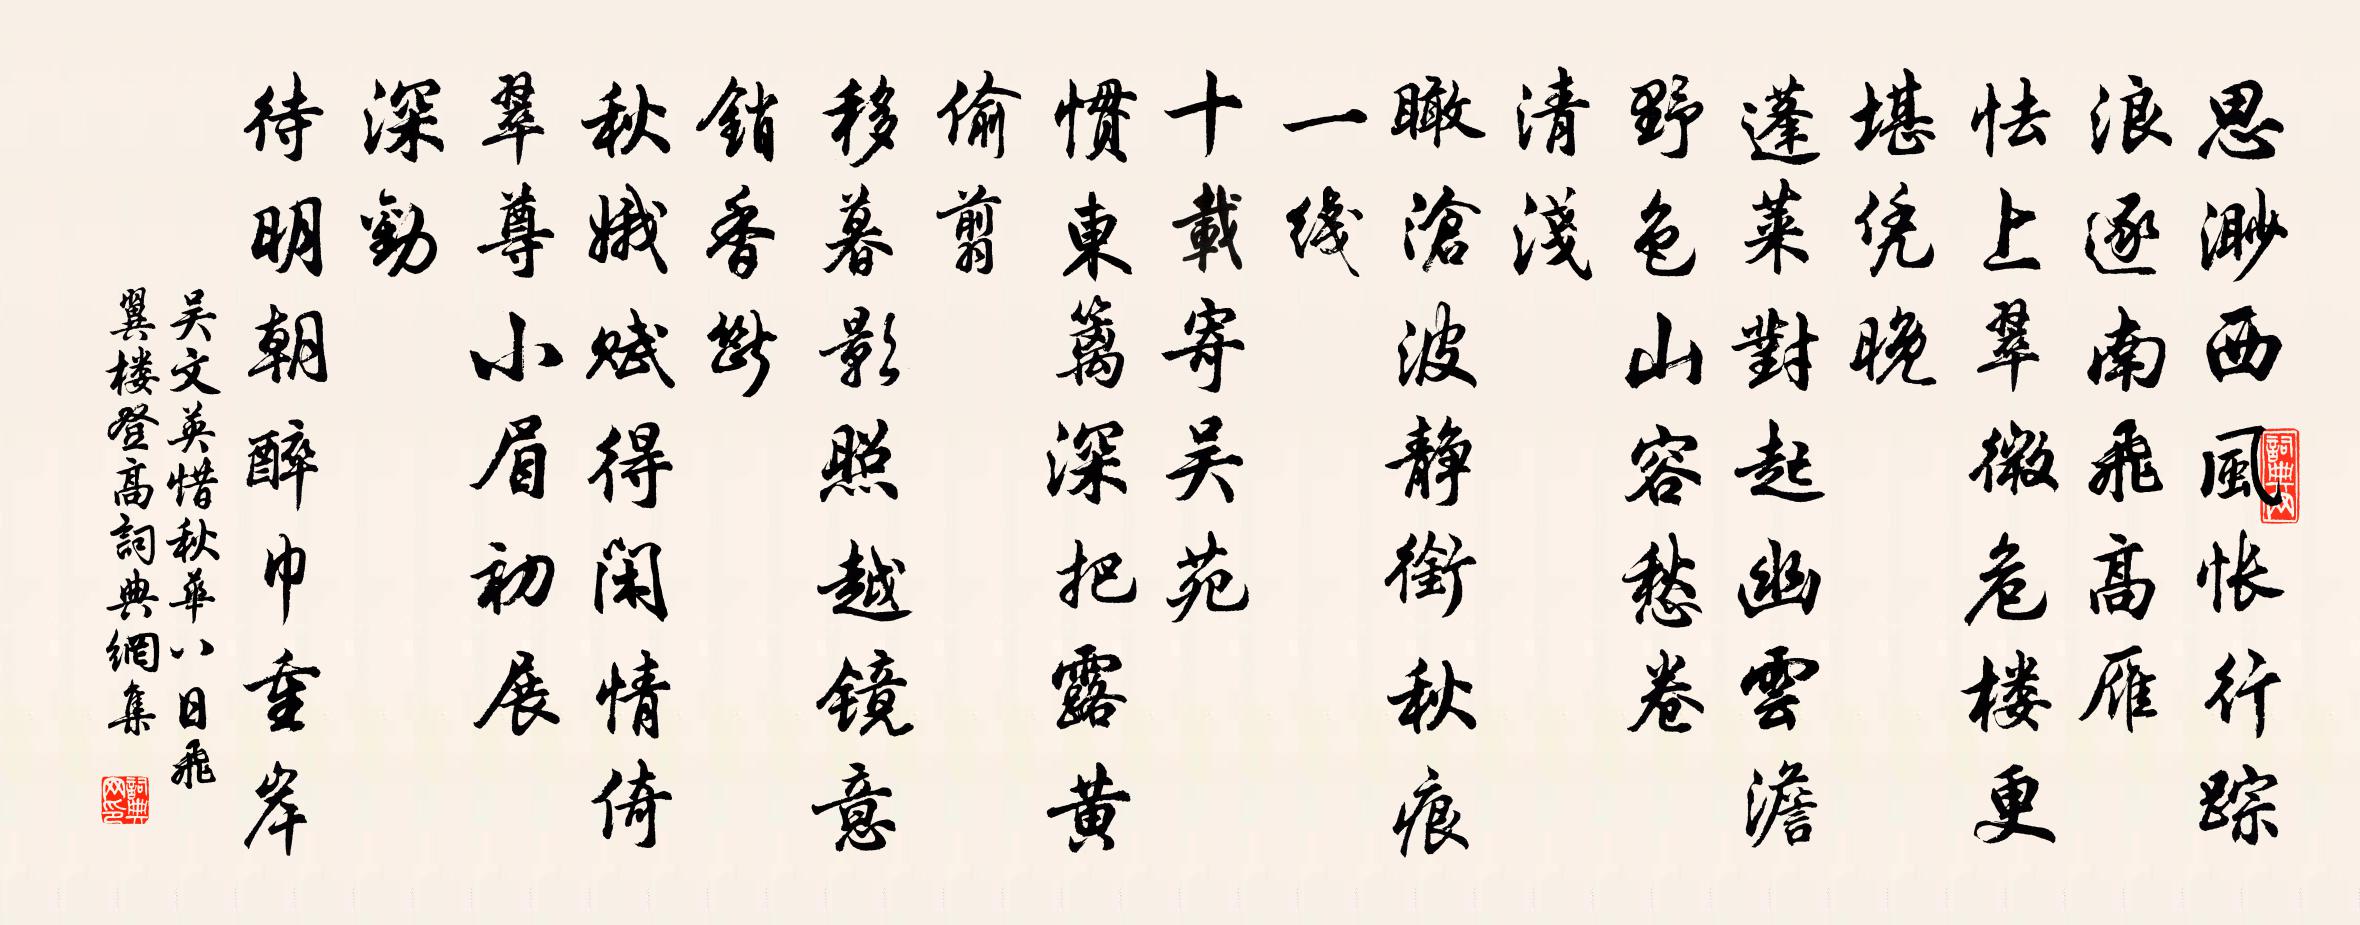 思渺西風悵行踪
浪逐南飛高雁
怯上翠微危楼更
堪凭晚
蓬莱對起幽雲澹
野色山容愁卷
清淺
瞰滄波静銜秋痕
一线
十載寄吴苑
慣東籬深把露黄
偷翦
移暮影照越鏡意
銷香斷
秋娥賦得閑情倚
翠尊小眉初展
深勸
待明朝醉巾重岸
吴文英惜秋華八日飛
翼楼登高詞典網集
詞典网
詞典网印